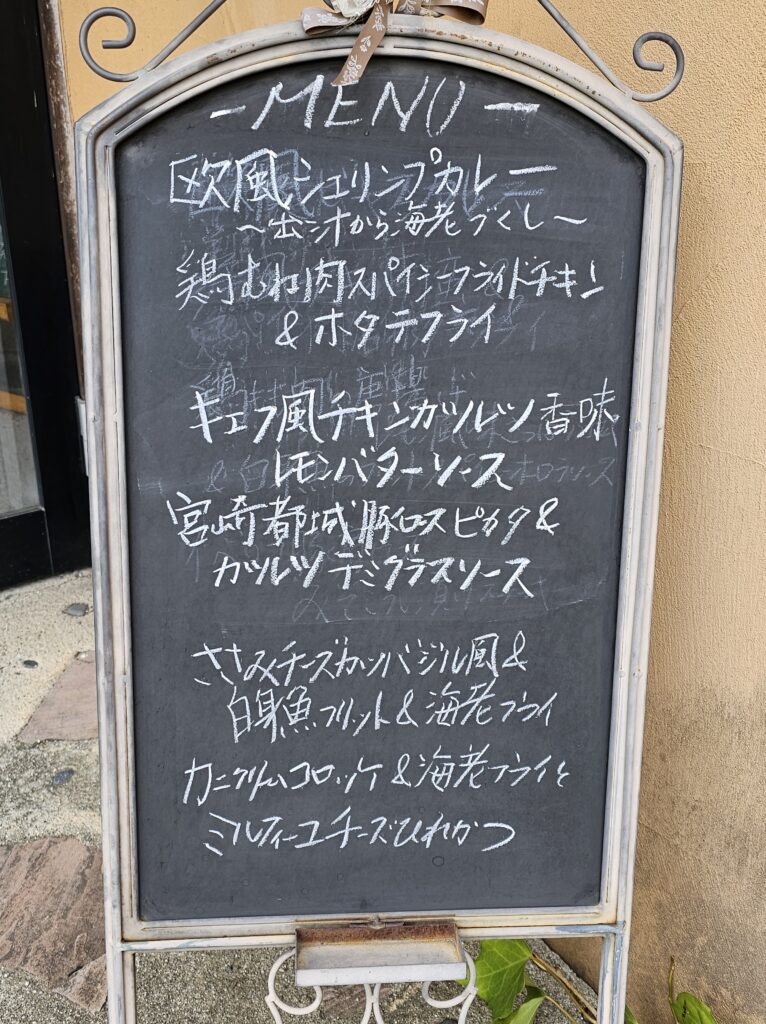 -MENU-
欧風シュリンプカレー
～出汁から海老づくし～
鶏むね肉スパイシーフライドチキン
&ホタテフライ
キエフ風チキンカツレツ香味
レモンバターソース
宮崎都城豚ロースピカタ&
カツレツデミグラスソース
ささみチーズカツバジル風&
白身魚フリット&海老フライ
カニクリームコロッケ&海老フライと
ミルフィーユチーズひれかつ